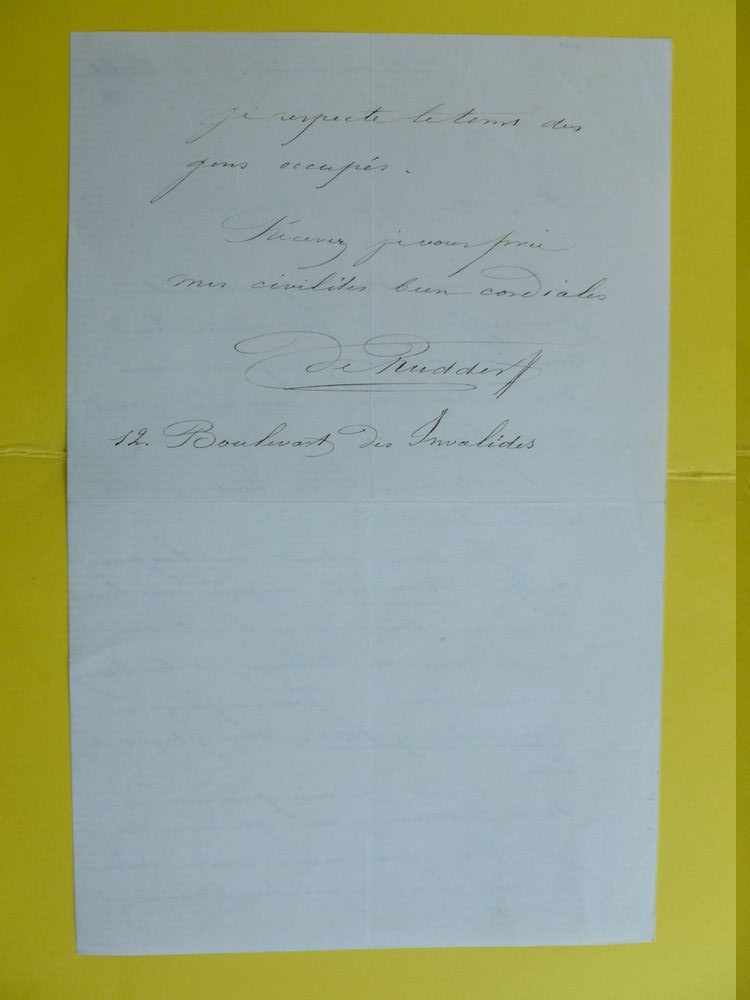 je respecte le tems des
gens occupés.
Recevez je vous prie
mes civilités bien cordiales
De Rudder
12. Boulevart des Invalides